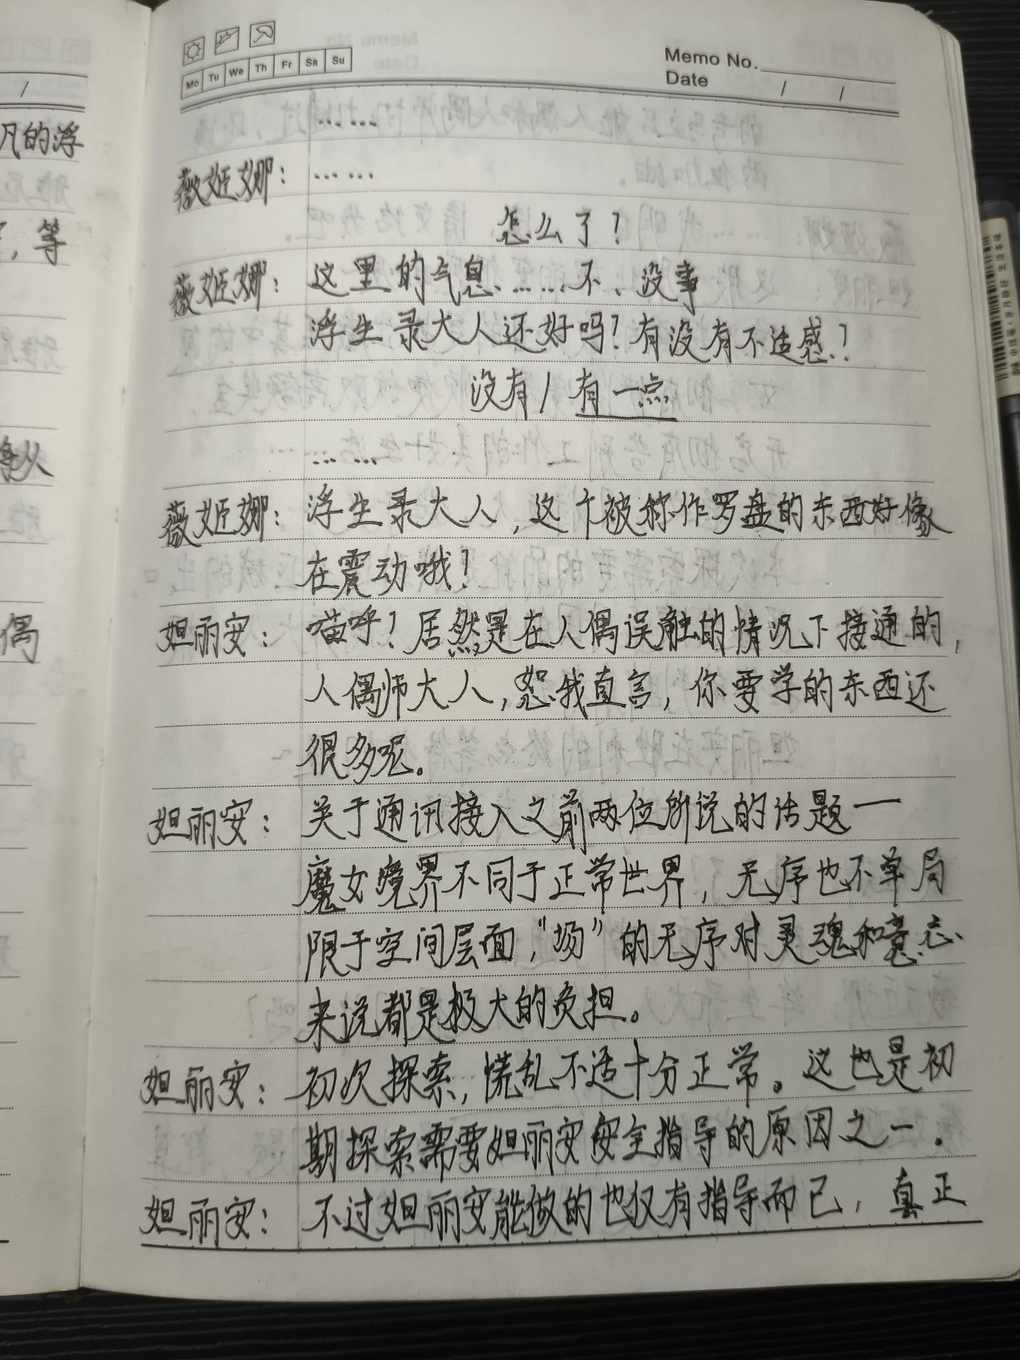 Mo Tu We Th Fr Sa Su
Memo No.
Date / /
……
薇姬娜：……
怎么了？
薇姬娜：这里的气息……不、没事
浮生录大人还好吗？有没有不适感？
没有/有一点
……
薇姬娜：浮生录大人，这个被称作罗盘的东西好像
在震动哦！
妲丽安：喵呼？居然是在人偶误触的情况下接通的，
人偶师大人，恕我直言，你要学的东西还
很多呢。
妲丽安：关于通讯接入之前两位所说的话题一
魔女境界不同于正常世界，无序也不单局
限于空间层面，“场”的无序对灵魂和意志
来说都是极大的负担。
妲丽安：初次探索，慌乱不适十分正常。这也是初
期探索需要妲丽安安全指导的原因之一.
妲丽安：不过妲丽安能做的也仅有指导而已，真正
/
凡的浮
，等
偶